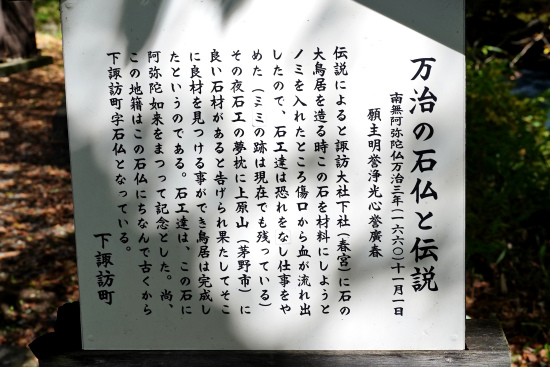 万治の石仏と伝説
南無阿弥陀仏万治三年(一六六〇)十一月一日
願主明誉浄光心誉廣春
伝説によると諏訪大社下社(春宮)に石の
大鳥居を造る時この石を材料にしようと
ノミを入れたところ傷口から血が流れ出
したので、石工達は恐れをなし仕事をや
めた(ミミの跡は現在でも残っている)
その夜石工の夢枕に上原山(茅野市)に
良い石材があると告げられ果たしてそこ
に良材を見つける事ができ鳥居は完成し
たというのである。石工達は、この石に
阿弥陀如来をまつって記念とした。尚、
この地籍はこの石仏にちなんで古くから
下諏訪町字石仏となっている。
下諏訪町